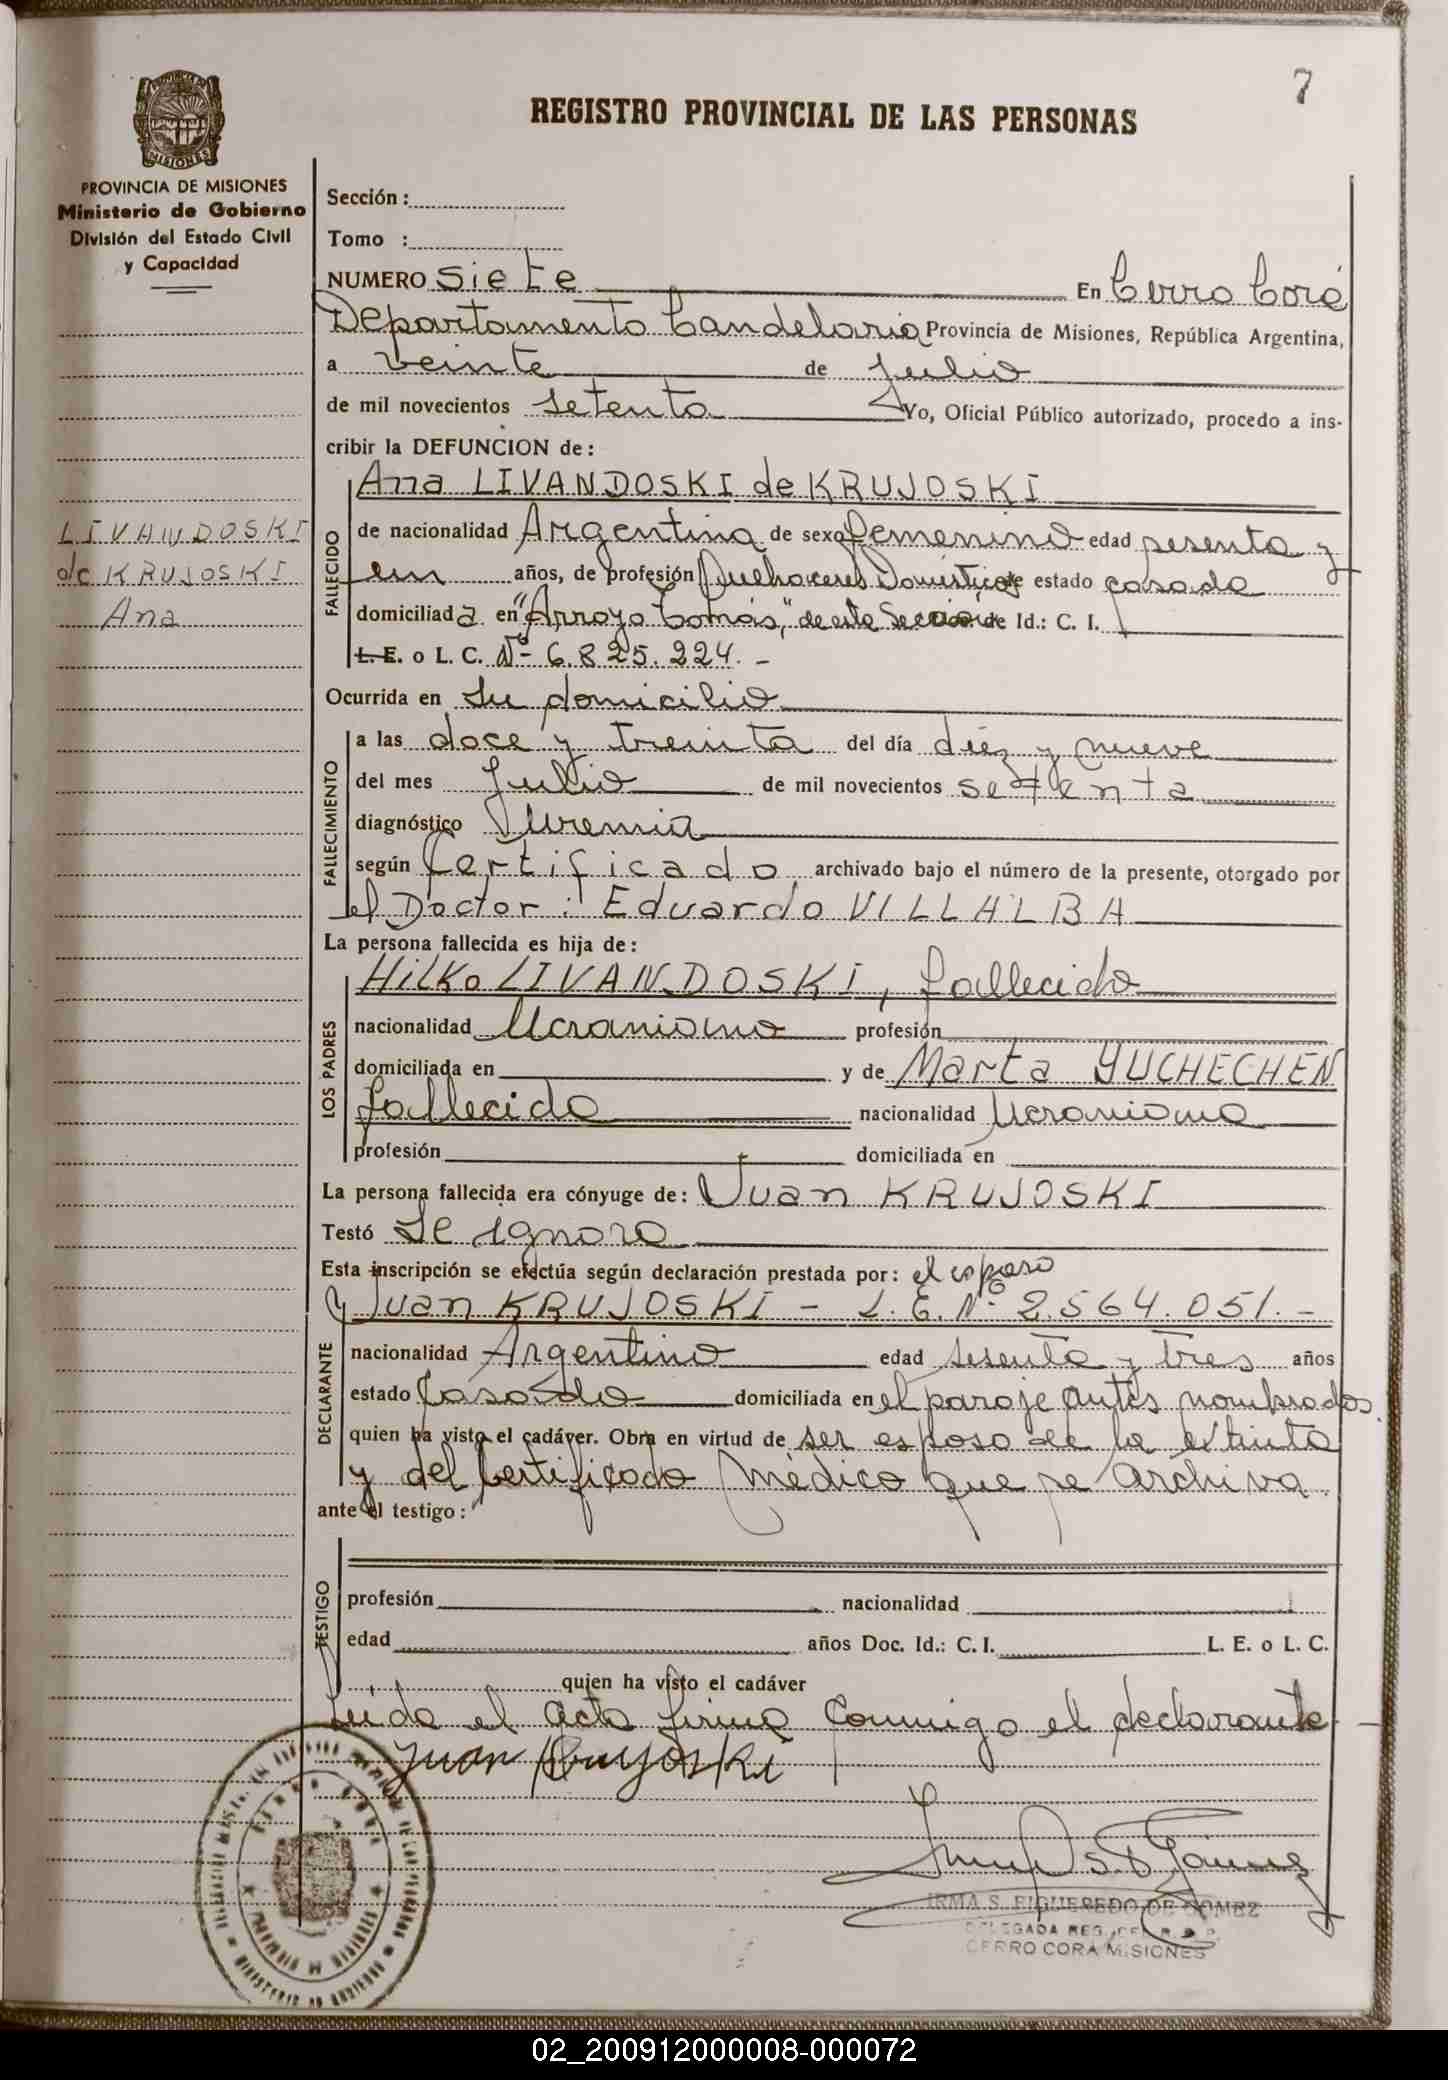 7
REGISTRO PROVINCIAL DE LAS PERSONAS
PROVINCIA DE MISIONES
Ministerio de Gobierno
División del Estado Civil
y Capacidad
Sección:
Tomo :
NUMERO siete En Cerro Corá
Departamento Candelaria Provincia de Misiones, República Argentina,
a veinte de julio
de mil novecientos setenta Yo, Oficial Público autorizado, procedo a ins-
cribir la DEFUNCION de:
LIVANDOSKI
de KRUJOSKI
Ana
FALLECIDO
Ana LIVANDOSKI de KRUJOSKI
de nacionalidad Argentina de sexo femenino edad sesenta y
un años, de profesión Quehaceres Domésticos de estado casada
domiciliada en "Arroyo Tomás," de esta Sección de Id.: C. I.
L. E. o L. C. Nº 6.825.224. -
Ocurrida en su domicilio
FALLECIMIENTO
a las doce y treinta del día diez y nueve
del mes Julio de mil novecientos setenta
diagnóstico Uremia
según Certificado archivado bajo el número de la presente, otorgado por
el Doctor: Eduardo VILLALBA
La persona fallecida es hija de:
LOS PADRES
Hilko LIVANDOSKI, fallecido
nacionalidad Ucraniano profesión
domiciliada en y de Marta YUCHECHEN
fallecida nacionalidad Ucraniana
profesión domiciliada en
La persona fallecida era cónyuge de: Juan KRUJOSKI
Testó se ignora
Esta inscripción se efectúa según declaración prestada por: el esposo
DECLARANTE
Juan KRUJOSKI - L.E. Nº 2.564.051. -
nacionalidad Argentino edad sesenta y tres años
estado Casado domiciliada en el paraje antes nombrados
quien ha visto el cadáver. Obra en virtud de ser esposo de la extinta
y del Certificado Médico que se archiva.
ante el testigo:
TESTIGO
profesión nacionalidad
edad años Doc. Id.: C. I. L. E. o L. C.
quien ha visto el cadáver
Leída el acta firma conmigo el declarante -
Juan Krujoski
IRMA S. FIGUEREDO DE GOMEZ
DELEGADA REG. DE
CERRO CORA MISIONES
02_200912000008-000072